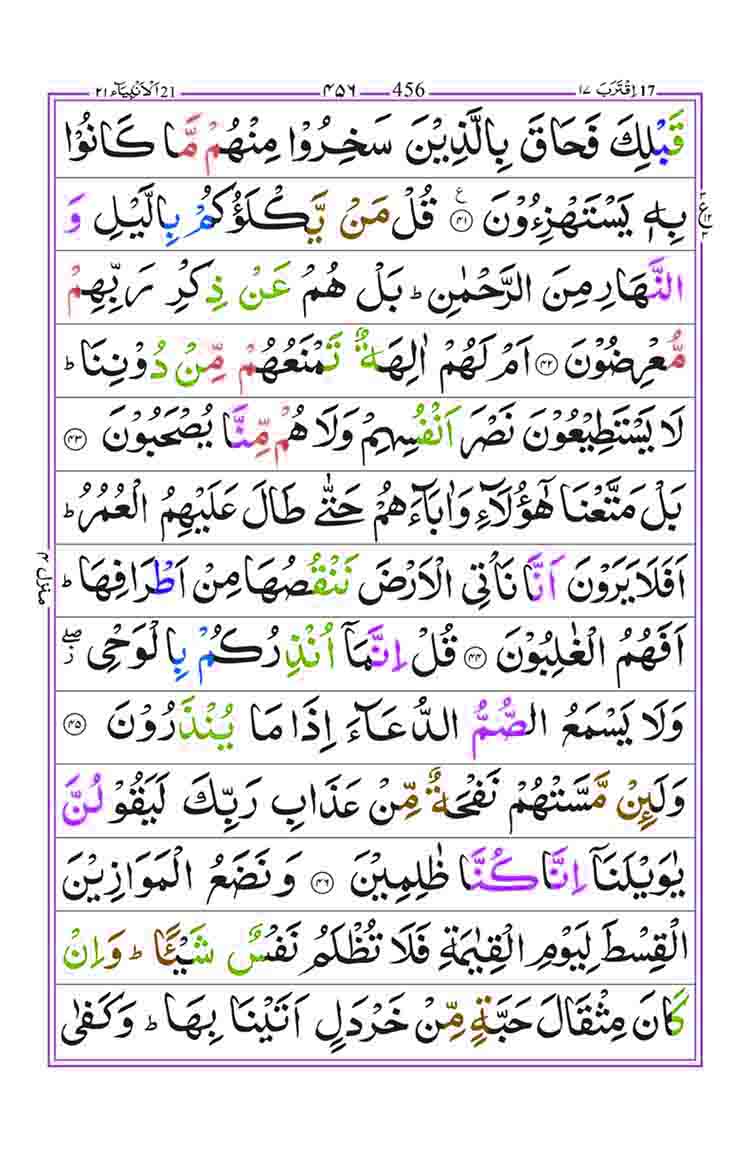 اِقْتَرَبَ ١٧ 17 456 ۴۵۶ اَلْاَنْۢبِيَآء ٢١ 21
قَبْلِكَ فَحَاقَ بِالَّذِيْنَ سَخِرُوْا مِنْهُمْ مَّا كَانُوْا
بِهٖ يَسْتَهْزِءُوْنَ ۴۱ ع قُلْ مَنْ يَّكْلَؤُكُمْ بِالَّيْلِ وَ
النَّهَارِ مِنَ الرَّحْمٰنِ ؕ بَلْ هُمْ عَنْ ذِكْرِ رَبِّهِمْ
مُّعْرِضُوْنَ ۴۲ اَمْ لَهُمْ اٰلِهَةٌ تَمْنَعُهُمْ مِّنْ دُوْنِنَا ؕ
لَا يَسْتَطِيْعُوْنَ نَصْرَ اَنْفُسِهِمْ وَلَا هُمْ مِّنَّا يُصْحَبُوْنَ ۴۳
بَلْ مَتَّعْنَا هٰٓؤُلَآءِ وَاٰبَآءَهُمْ حَتّٰى طَالَ عَلَيْهِمُ الْعُمُرُ ؕ
اَفَلَا يَرَوْنَ اَنَّا نَاْتِى الْاَرْضَ نَنْقُصُهَا مِنْ اَطْرَافِهَا ؕ
اَفَهُمُ الْغٰلِبُوْنَ ۴۴ قُلْ اِنَّمَآ اُنْذِرُكُمْ بِالْوَحْىِ ۖ ز
وَلَا يَسْمَعُ الصُّمُّ الدُّعَآءَ اِذَا مَا يُنْذَرُوْنَ ۴۵
وَلَئِنْ مَّسَّتْهُمْ نَفْحَةٌ مِّنْ عَذَابِ رَبِّكَ لَيَقُوْلُنَّ
يٰوَيْلَنَآ اِنَّا كُنَّا ظٰلِمِيْنَ ۴۶ وَنَضَعُ الْمَوَازِيْنَ
الْقِسْطَ لِيَوْمِ الْقِيٰمَةِ فَلَا تُظْلَمُ نَفْسٌ شَيْئًا ؕ وَاِنْ
كَانَ مِثْقَالَ حَبَّةٍ مِّنْ خَرْدَلٍ اَتَيْنَا بِهَا ؕ وَكَفٰى
منزل ۴